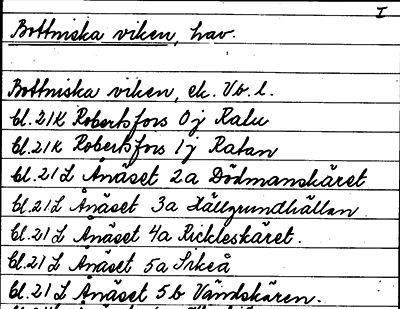 I
Bottniska viken, hav.
Bottniska viken, ek. Vb. l.
Bl. 21K Robertsfors 0j Ralu
Bl. 21K Robertsfors 1j Ratan
Bl. 21L Ånäset 2a Dödmanskäret
Bl. 21L Ånäset 3a Hällgrundhällan
Bl. 21L Ånäset 4a Rickleskäret.
Bl. 21L Ånäset 5a Sikeå
Bl. 21L Ånäset 5b Vändskären.